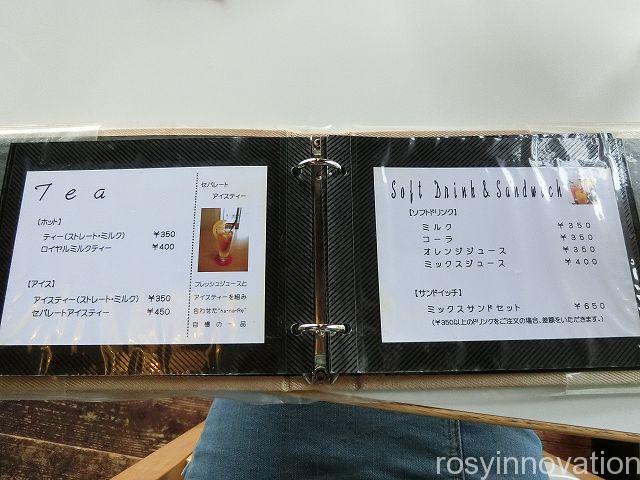 Tea
【ホット】
ティー(ストレート・ミルク) ¥350
ロイヤルミルクティー ¥400
【アイス】
アイスティー(ストレート・ミルク) ¥350
セパレートアイスティー ¥450
セパレート
アイスティー
フレッシュジュースと
アイスティーを組み
合わせた"ha-na-Re"
自慢の一品
Soft Drink & Sandwich
【ソフトドリンク】
ミルク ¥350
コーラ ¥350
オレンジジュース ¥350
ミックスジュース ¥400
【サンドイッチ】
ミックスサンドセット ¥650
(¥350以上のドリンクをご注文の場合、差額をいただきます。)
rosyinnovation